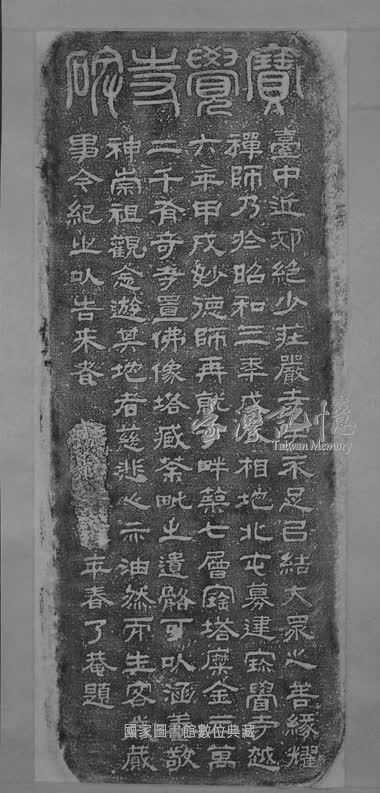 寶覺寺碑
臺中近郊絕少莊嚴寺不足召結大眾之善緣耀
禪師乃於昭和三年戊相地北屯募建寶覺寺越
六年甲戌妙德師再就畔築七層寶塔糜金三萬
二千有奇寺置佛像塔藏荼毗之遺骼可以涵養敬
神崇祖觀念遊其地者慈悲心亦油然而生客歲蕆
事今紀之以告来者 年春了菴題
臺灣記憶
Taiwan Memory
國家圖書館數位典藏